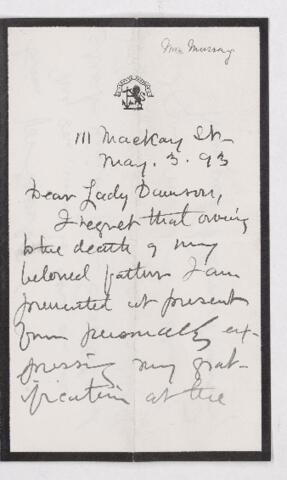 Mrs Murray
111 Mackay St-
May. 3. 93
Dear Lady Dawson,
I regret that owing
to the death of my
beloved father I am
prevented at present
from personally ex-
pressing my grat-
ification at the